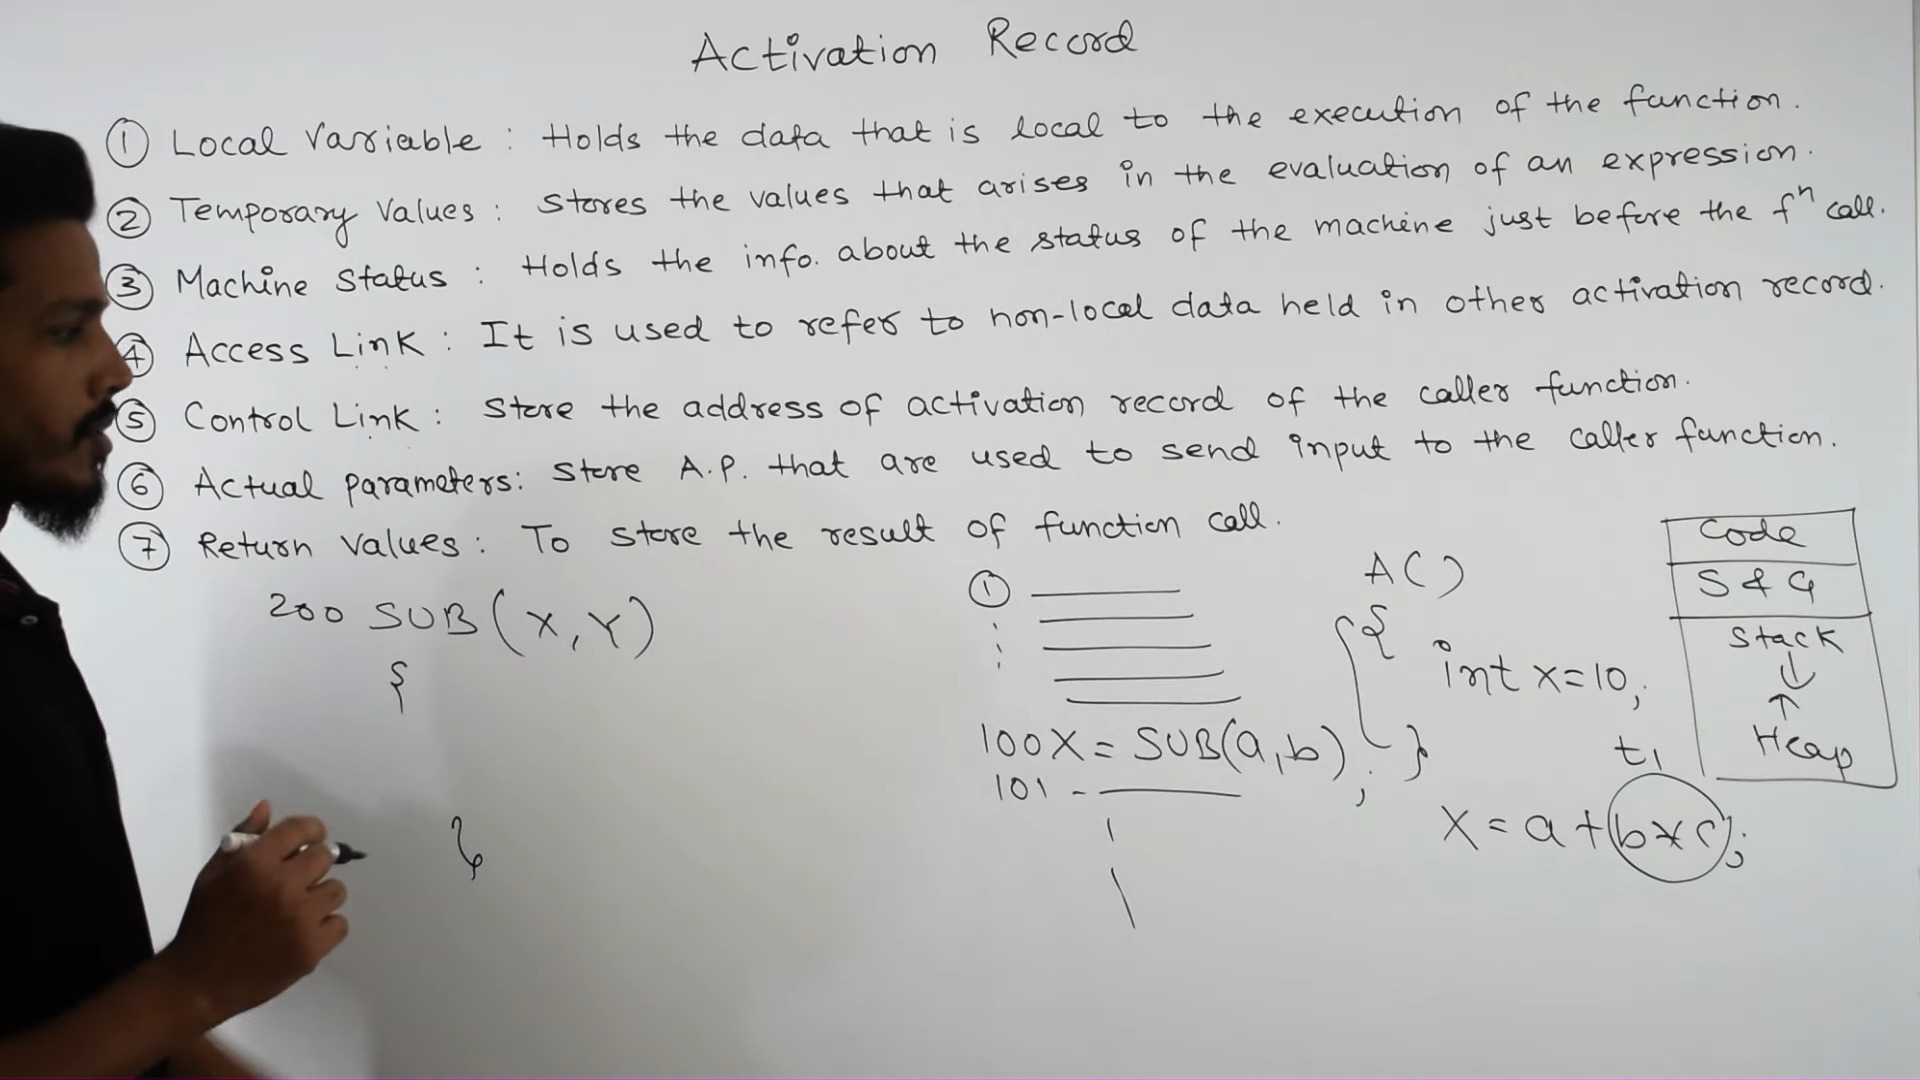 Activation Record
① Local Variable : Holds the data that is local to the execution of the function.
② Temporary Values : Stores the values that arises in the evaluation of an expression.
③ Machine Status : Holds the info. about the status of the machine just before the fⁿ call.
④ Access Link : It is used to refer to non-local data held in other activation record.
⑤ Control Link : Store the address of activation record of the caller function.
⑥ Actual parameters : Store A.P. that are used to send input to the caller function.
⑦ Return Values : To store the result of function call.
200 SUB(X,Y)
{
}
①
100 X = SUB(a,b);
101
A()
{
int x=10;
}
t1
X = a + b * c;
Code
S & G
Stack
↓
↑
Heap